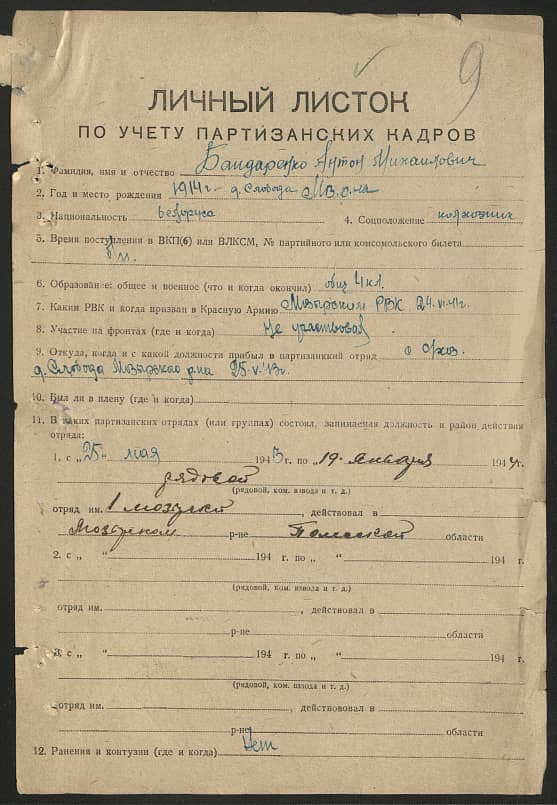 9
ЛИЧНЫЙ ЛИСТОК
ПО УЧЕТУ ПАРТИЗАНСКИХ КАДРОВ
1. Фамилия, имя и отчество Бандаренко Антон Михаилович
2. Год и место рождения 1914 г. д. Слобода
3. Национальность белоруса 4. Соцположение колхозник
5. Время поступления в ВКП(б) или ВЛКСМ, № партийного или комсомольского билета
6. Образование: общее и военное (что и когда окончил) общ 4 кл.
7. Каким РВК и когда призван в Красную Армию Мозырским РВК 24.VI.41г.
8. Участие на фронтах (где и когда) Не участвовал
9. Откуда, когда и с какой должности прибыл в партизанский отряд
д. Слобода Мозырскао р-на 25.V.43г.
10. Был ли в плену (где и когда)
11. В каких партизанских отрядах (или группах) состоял, занимаемая должность и район действия
отряда:
1. с „25“ мая 1943 г. по „19“ января 1944 г.
рядовой
(рядовой, ком. взвода и т. д.)
отряд им. 1 , действовал в
Мозырском р-не Полесской области
2. с „ “ 194 г. по „ “ 194 г.
(рядовой, ком. взвода и т. д.)
отряд им. , действовал в
р-не области
3. с „ “ 194 г. по „ “ 194 г.
(рядовой, ком. взвода и т. д.)
отряд им. , действовал в
р-не области
12. Ранения и контузии (где и когда) Нет